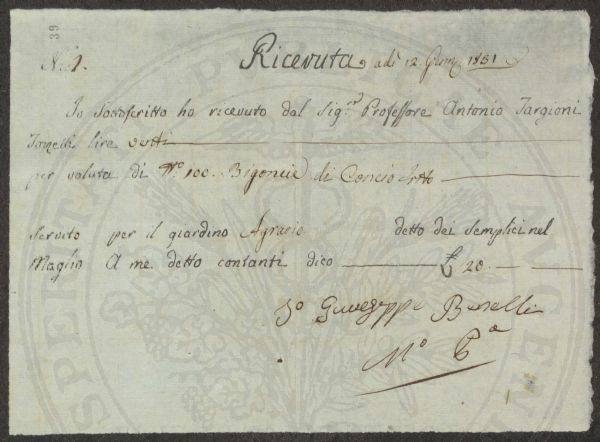 39
N.o 1.
Ricevuta, adì 12 Genn. 1831
Io Sottoscritto ho ricevuto dal Sig.re Professore Antonio Targioni
Tozzetti lire venti
per valuta di N.o 100. Bigoncie di Concio
servito per il giardino Agrario detto dei Semplici nel
Maglio A me detto contanti dico £ 20.
Io Giuseppe Bonelli
M.o P.a
SPETTA